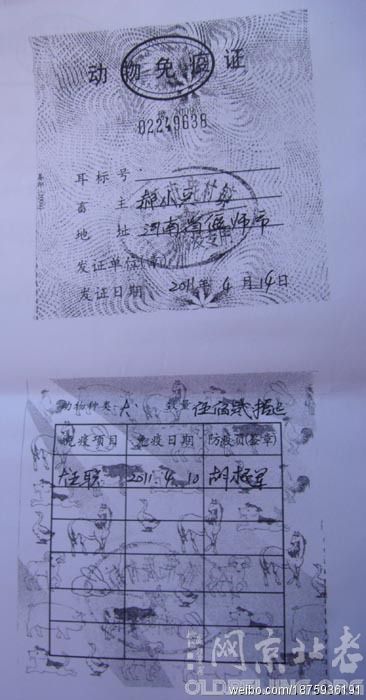 动物免疫证
02249638
耳标号
畜主 郝小豆
地址 河南省偃师市
发证单位(章)
发证日期 2011年 4月14日
动物种类: 犬 数量
免疫项目 免疫日期 防疫员(签章)
2011.4.10
老北京网
OLDBEIJING.ORG
weibo.com/1875936191